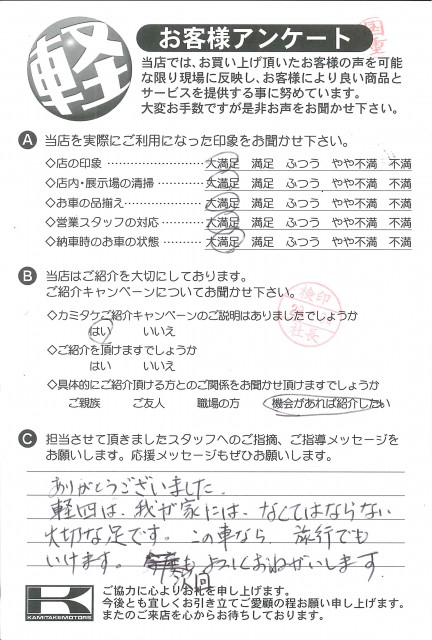 軽
お客様アンケート
当店では、お買い上げ頂いたお客様の声を可能
な限り現場に反映し、お客様により良い商品と
サービスを提供する事に努めています。
大変お手数ですが是非お声をお聞かせ下さい。
A 当店を実際にご利用になった印象をお聞かせ下さい。
◇店の印象 ………………… 大満足 満足 ふつう やや不満 不満
◇店内・展示場の清掃………… 大満足 満足 ふつう やや不満 不満
◇お車の品揃え……………… 大満足 満足 ふつう やや不満 不満
◇営業スタッフの対応………… 大満足 満足 ふつう やや不満 不満
◇納車時のお車の状態………… 大満足 満足 ふつう やや不満 不満
B 当店はご紹介を大切にしてあります。
ご紹介キャンペーンについてお聞かせ下さい。
検印
社長
◇カミタケご紹介キャンペーンのご説明はありましたでしょうか
はい いいえ
◇ご紹介を頂けますでしょうか
はい いいえ
◇具体的にご紹介頂ける方とのご関係をお聞かせ頂けますでしょうか
ご親族 ご友人 職場の方 機会があれば紹介したい
C 担当させて頂きましたスタッフへのご指摘、ご指導メッセージを
お願いします。応援メッセージもぜひお願いします。
ありがとうございました.
軽四は、我が家には、なくてはならない
大切な足です。この車なら、旅行でも
いけます。 次回もよろしくおねがいします
K
KAMITAKEMOTORS
ご協力に心よりお礼を申し上げます。
今後とも宜しくお引き立てご愛顧の程お願い申し上げます。
またのご来店を心からお待ちしております。